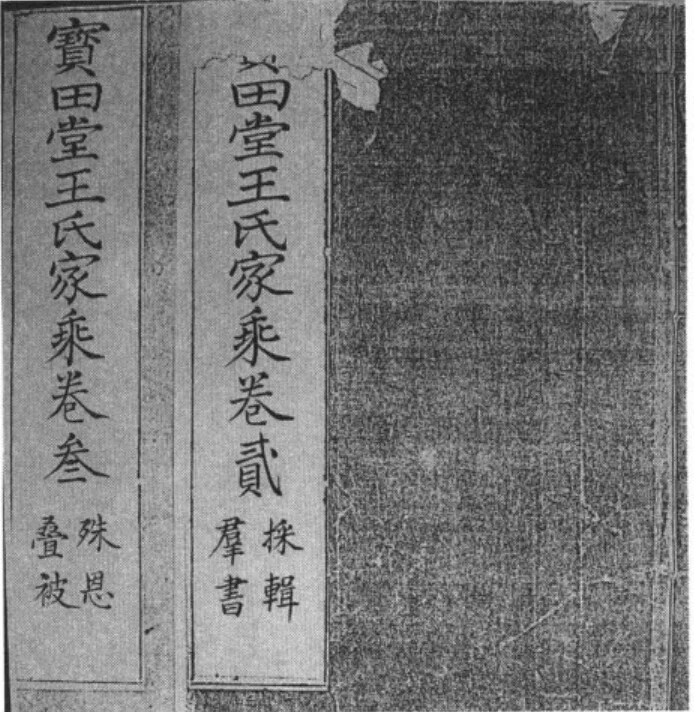 寶田堂王氏家乘卷貳
採輯
羣書
寶田堂王氏家乘卷叁
殊恩
疊被